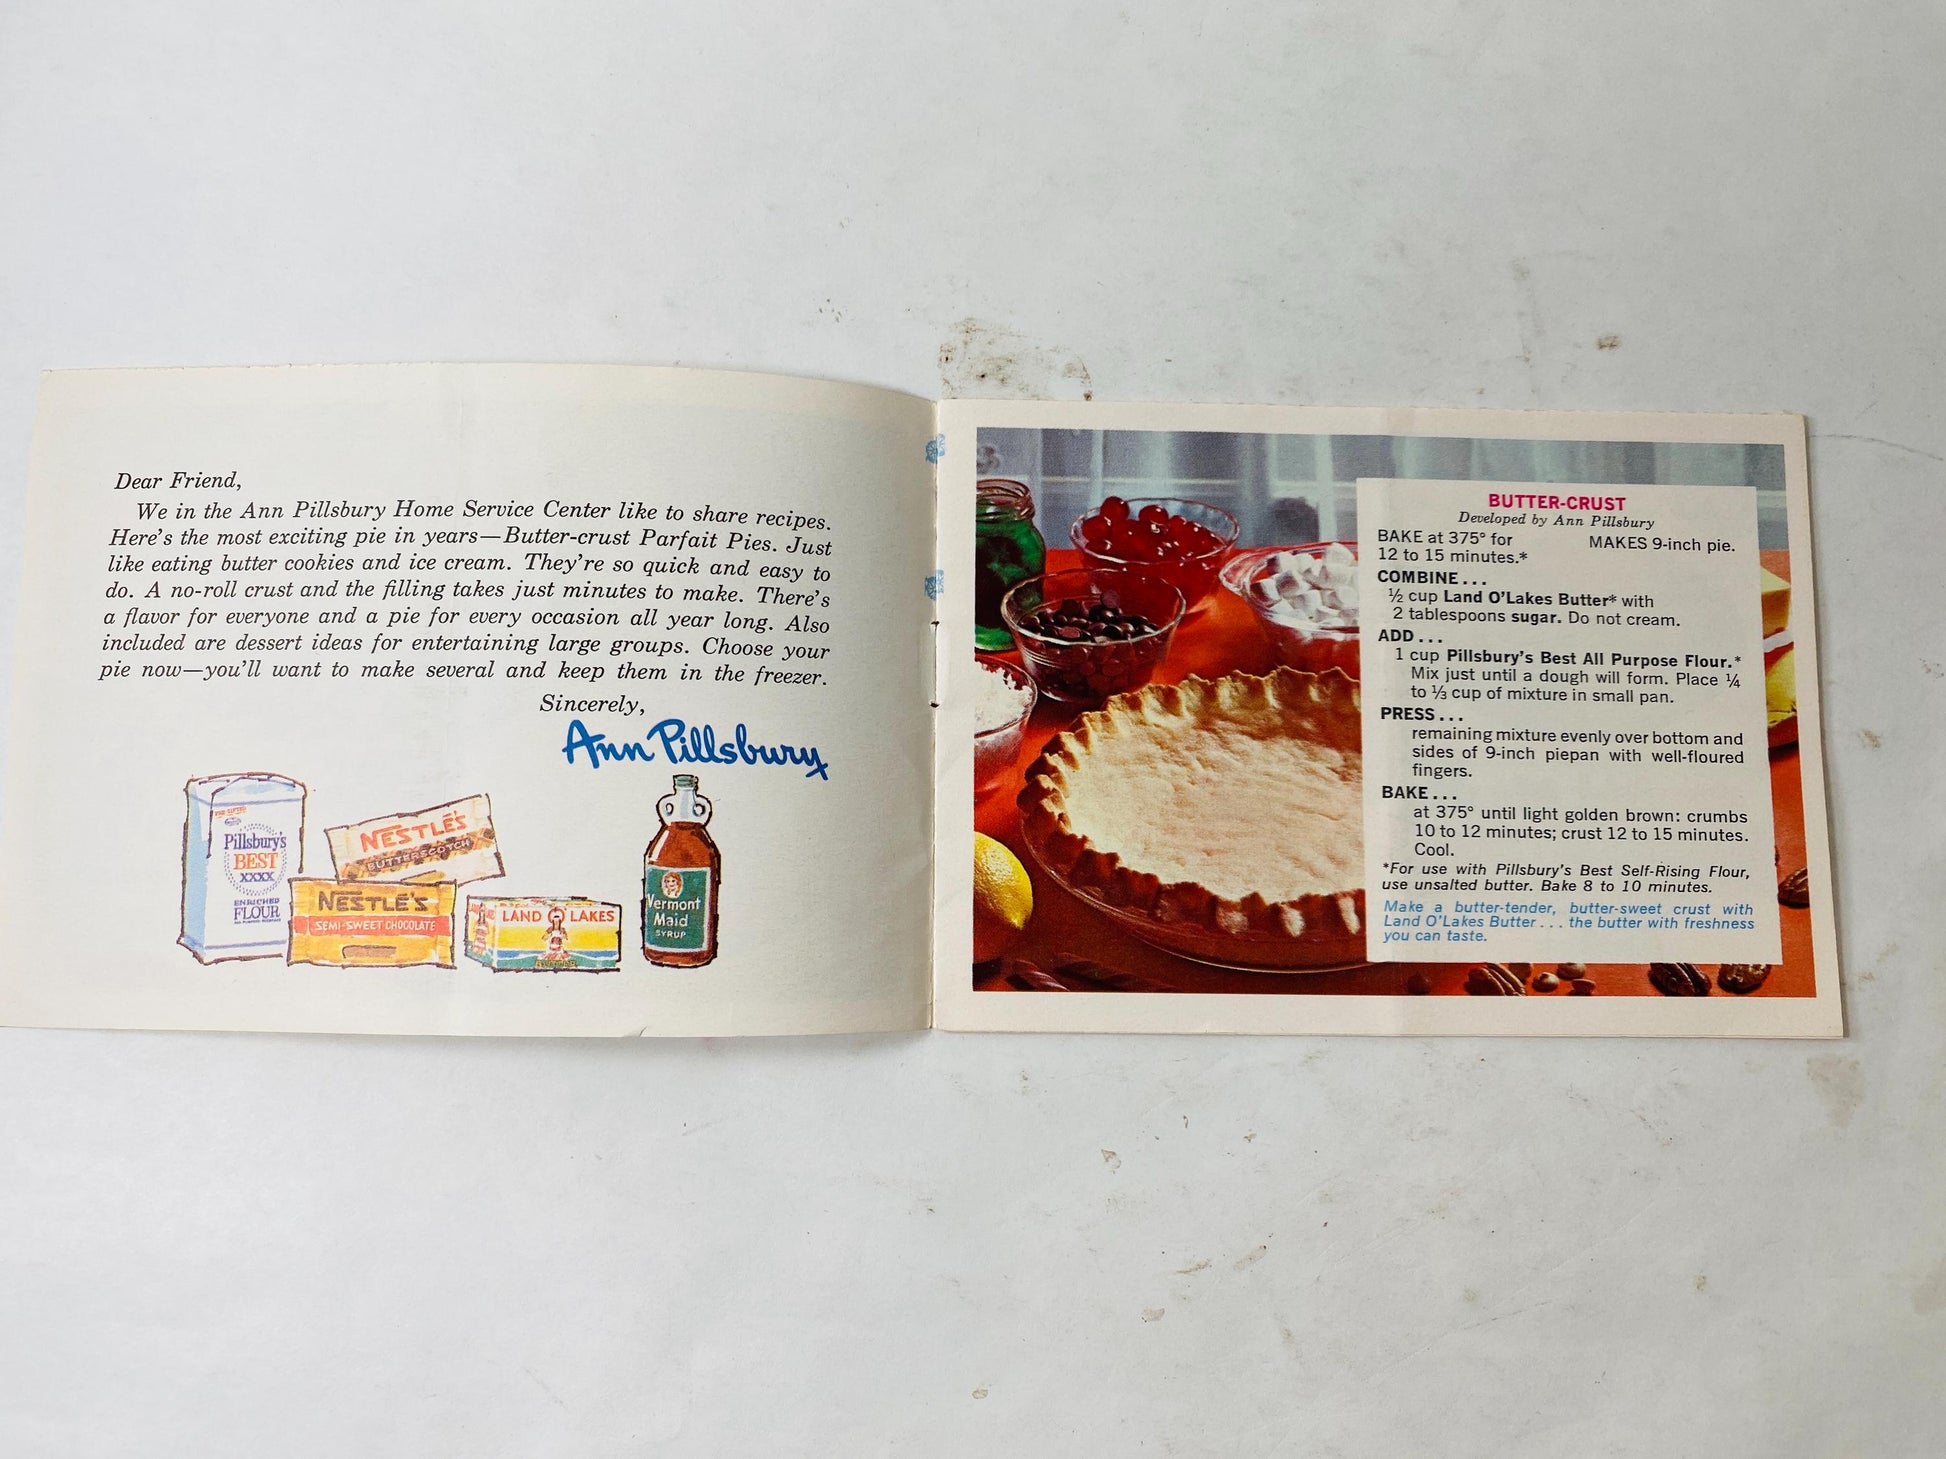 Dear Friend,
We in the Ann Pillsbury Home Service Center like to share recipes.
Here's the most exciting pie in years—Butter-crust Parfait Pies. Just
like eating butter cookies and ice cream. They're so quick and easy to
do. A no-roll crust and the filling takes just minutes to make. There's
a flavor for everyone and a pie for every occasion all year long. Also
included are dessert ideas for entertaining large groups. Choose your
pie now—you'll want to make several and keep them in the freezer.
Sincerely,
Ann Pillsbury
Pillsbury's
BEST
XXXX
ENRICHED
FLOUR
NESTLÉ'S
BUTTERSCOTCH
NESTLÉ'S
SEMI-SWEET CHOCOLATE
LAND O LAKES
Vermont
Maid
SYRUP
BUTTER-CRUST
Developed by Ann Pillsbury
BAKE at 375° for
12 to 15 minutes.*
MAKES 9-inch pie.
COMBINE...
½ cup Land O'Lakes Butter* with
2 tablespoons sugar. Do not cream.
ADD...
1 cup Pillsbury's Best All Purpose Flour.*
Mix just until a dough will form. Place ¼
to ⅓ cup of mixture in small pan.
PRESS...
remaining mixture evenly over bottom and
sides of 9-inch piepan with well-floured
fingers.
BAKE...
at 375° until light golden brown: crumbs
10 to 12 minutes; crust 12 to 15 minutes.
Cool.
*For use with Pillsbury's Best Self-Rising Flour,
use unsalted butter. Bake 8 to 10 minutes.
Make a butter-tender, butter-sweet crust with
Land O'Lakes Butter... the butter with freshness
you can taste.